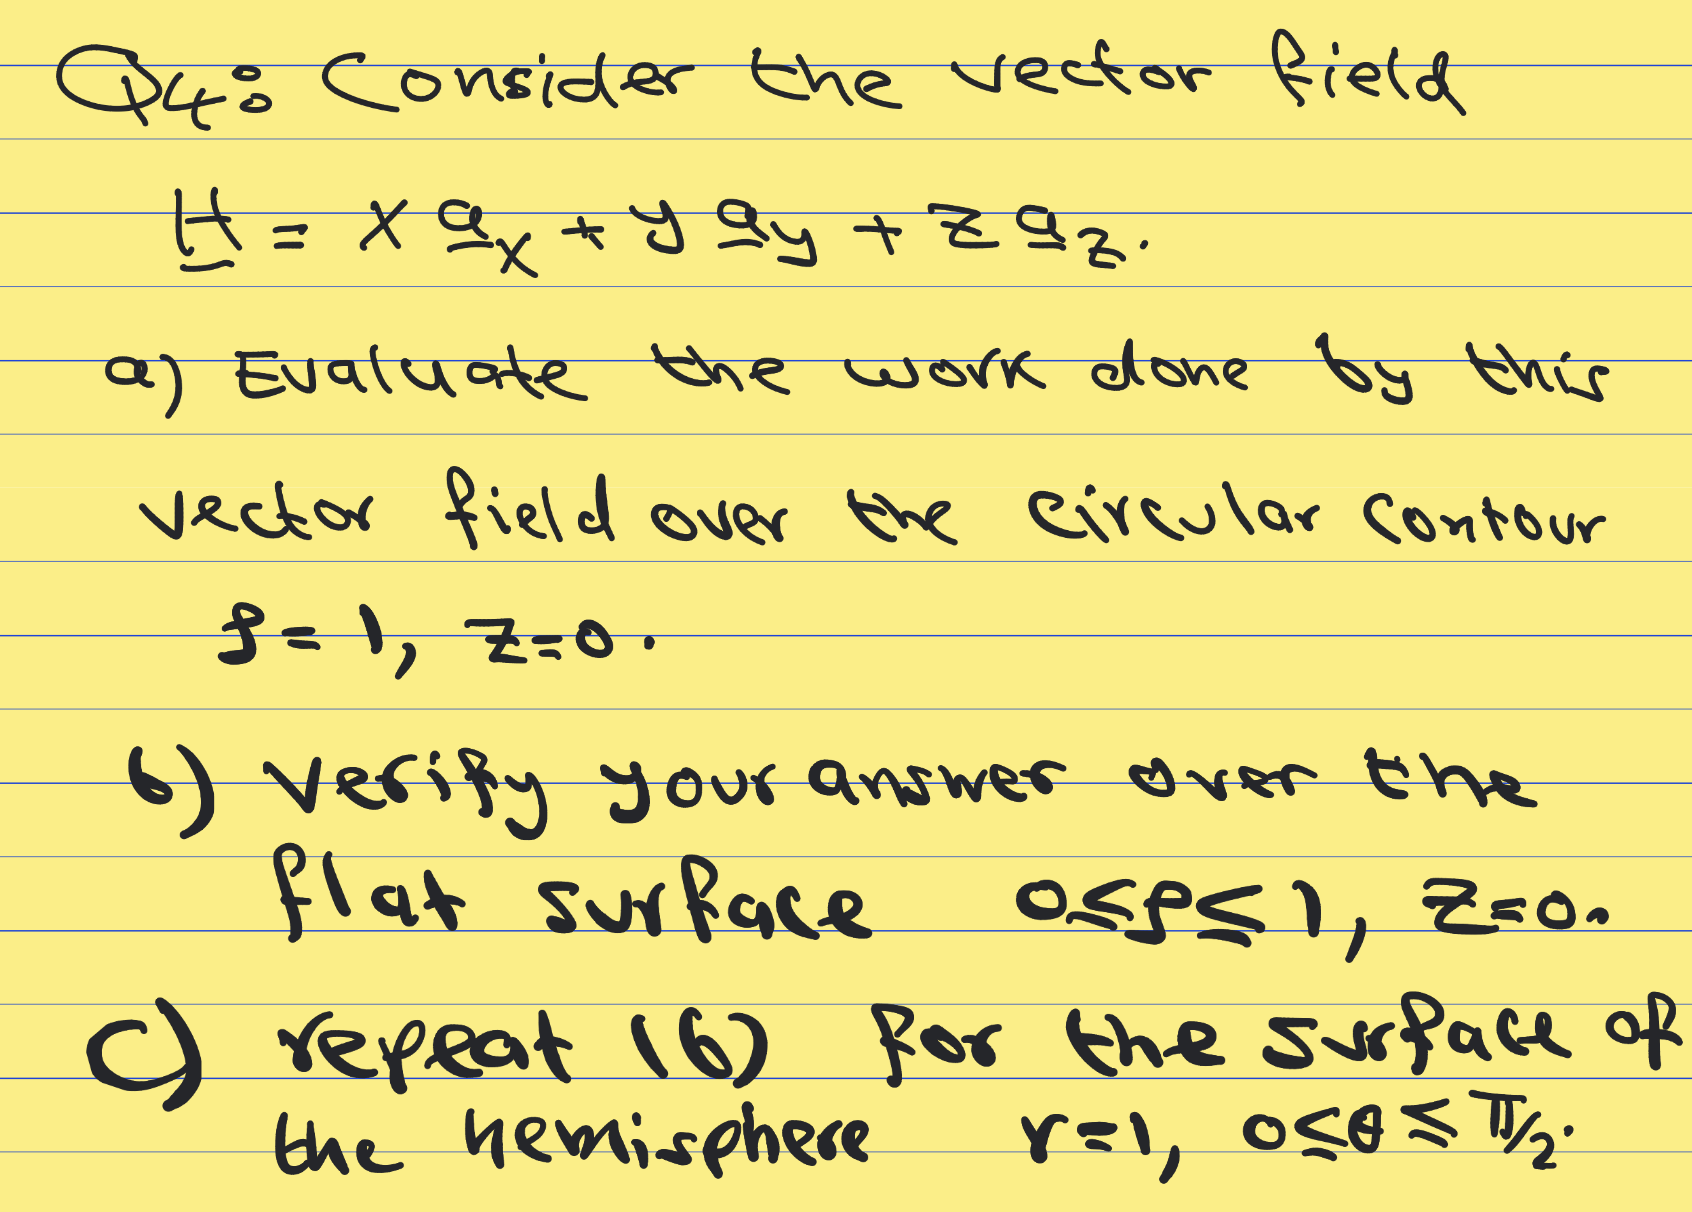 Q4: Consider the vector field
H = x a_x + y a_y + z a_z.
a) Evaluate the work done by this
vector field over the circular contour
ρ = 1, z=0.
b) verify your answer over the
flat surface 0≤ρ≤1, z=0.
c) repeat (b) for the surface of
the hemisphere r=1, 0≤θ≤π/2.